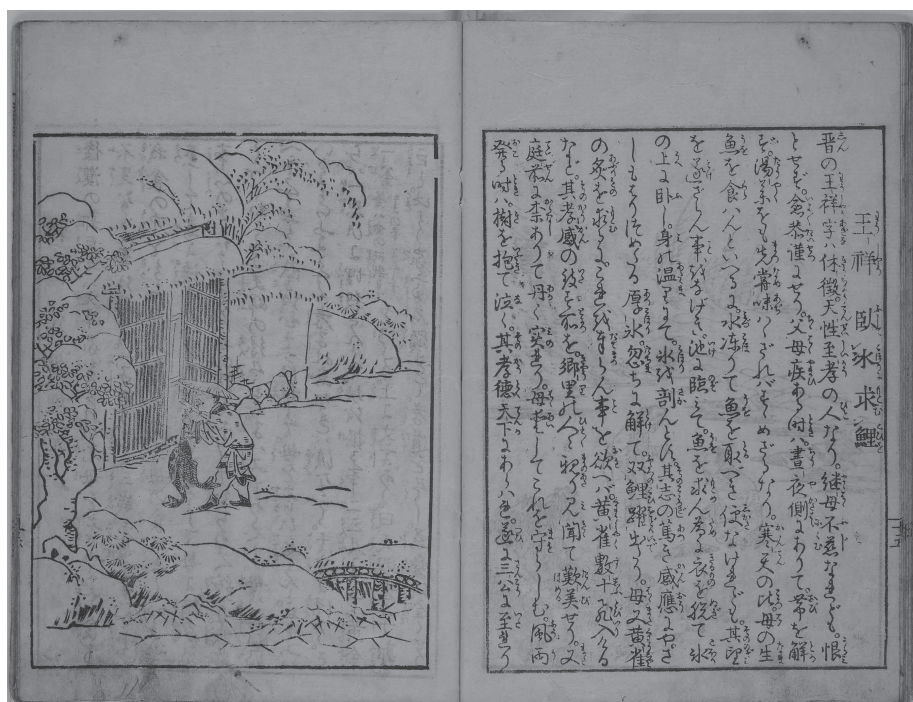 王祥 臥氷求鯉
晋の王祥字ハ休徴。天性至孝の人なり。継母不慈なれども。恨
とせず。愈恭謹にせり。父母疾ある時ハ。晝夜側にありて。帯を解
ず。湯薬をも先嘗味ハざれバすゝめざりけり。寒天の比。母の生
魚を食ハんといへるに。氷凍りて魚を取べき便なけれども。其望
を遂ざらん事をなげき。池に臨て。魚を求ん為に衣を脱て氷
の上に臥し。身の温まりにて。氷を剖んとす。其志の篤き感應にや。さ
しもはりつめたる厚氷。忽ちに解て。双鯉躍り出たり。母又黄雀
の炙を これを奉らん事を欲へバ。黄雀數十飛入る
なり。其孝感の致す所を。郷里の人々 見聞て歎美せり。又
庭前に柰ありて丹く實る。母 してこれを守らしむ。風雨
發る時ハ。樹を抱て泣く。其孝徳天下にあらハれ。遂に三公に至れり